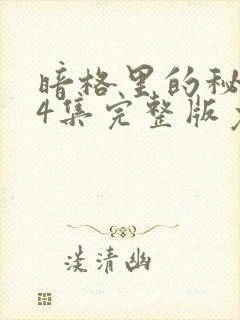 暗格里的秘
4集完整版
淡清幽